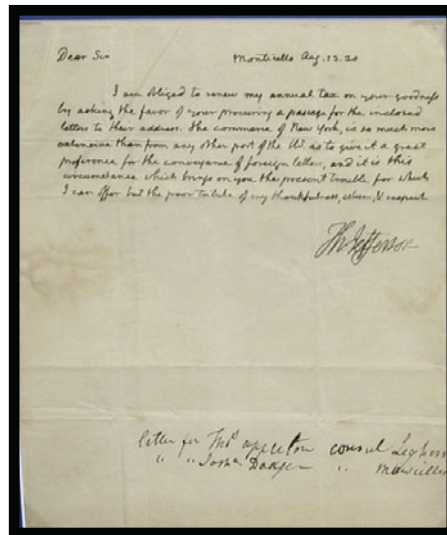 Dear Sir Monticello Aug. 13. 20
I am obliged to renew my annual tax on your goodness
by asking the favor of your procuring a passage for the inclosed
letters to their address. the commerce of New York, is so much more
extensive than from any other port of the US. as to give it a great
preference for the conveyance of foreign letters, and it is this
circumstance which brings on you the present trouble for which
I can offer but the poor tribute of my thankfulness, esteem, & respect
Th Jefferson
letter for Thos appleton consul Leghorn
" " Joshua Dodge " Marseilles